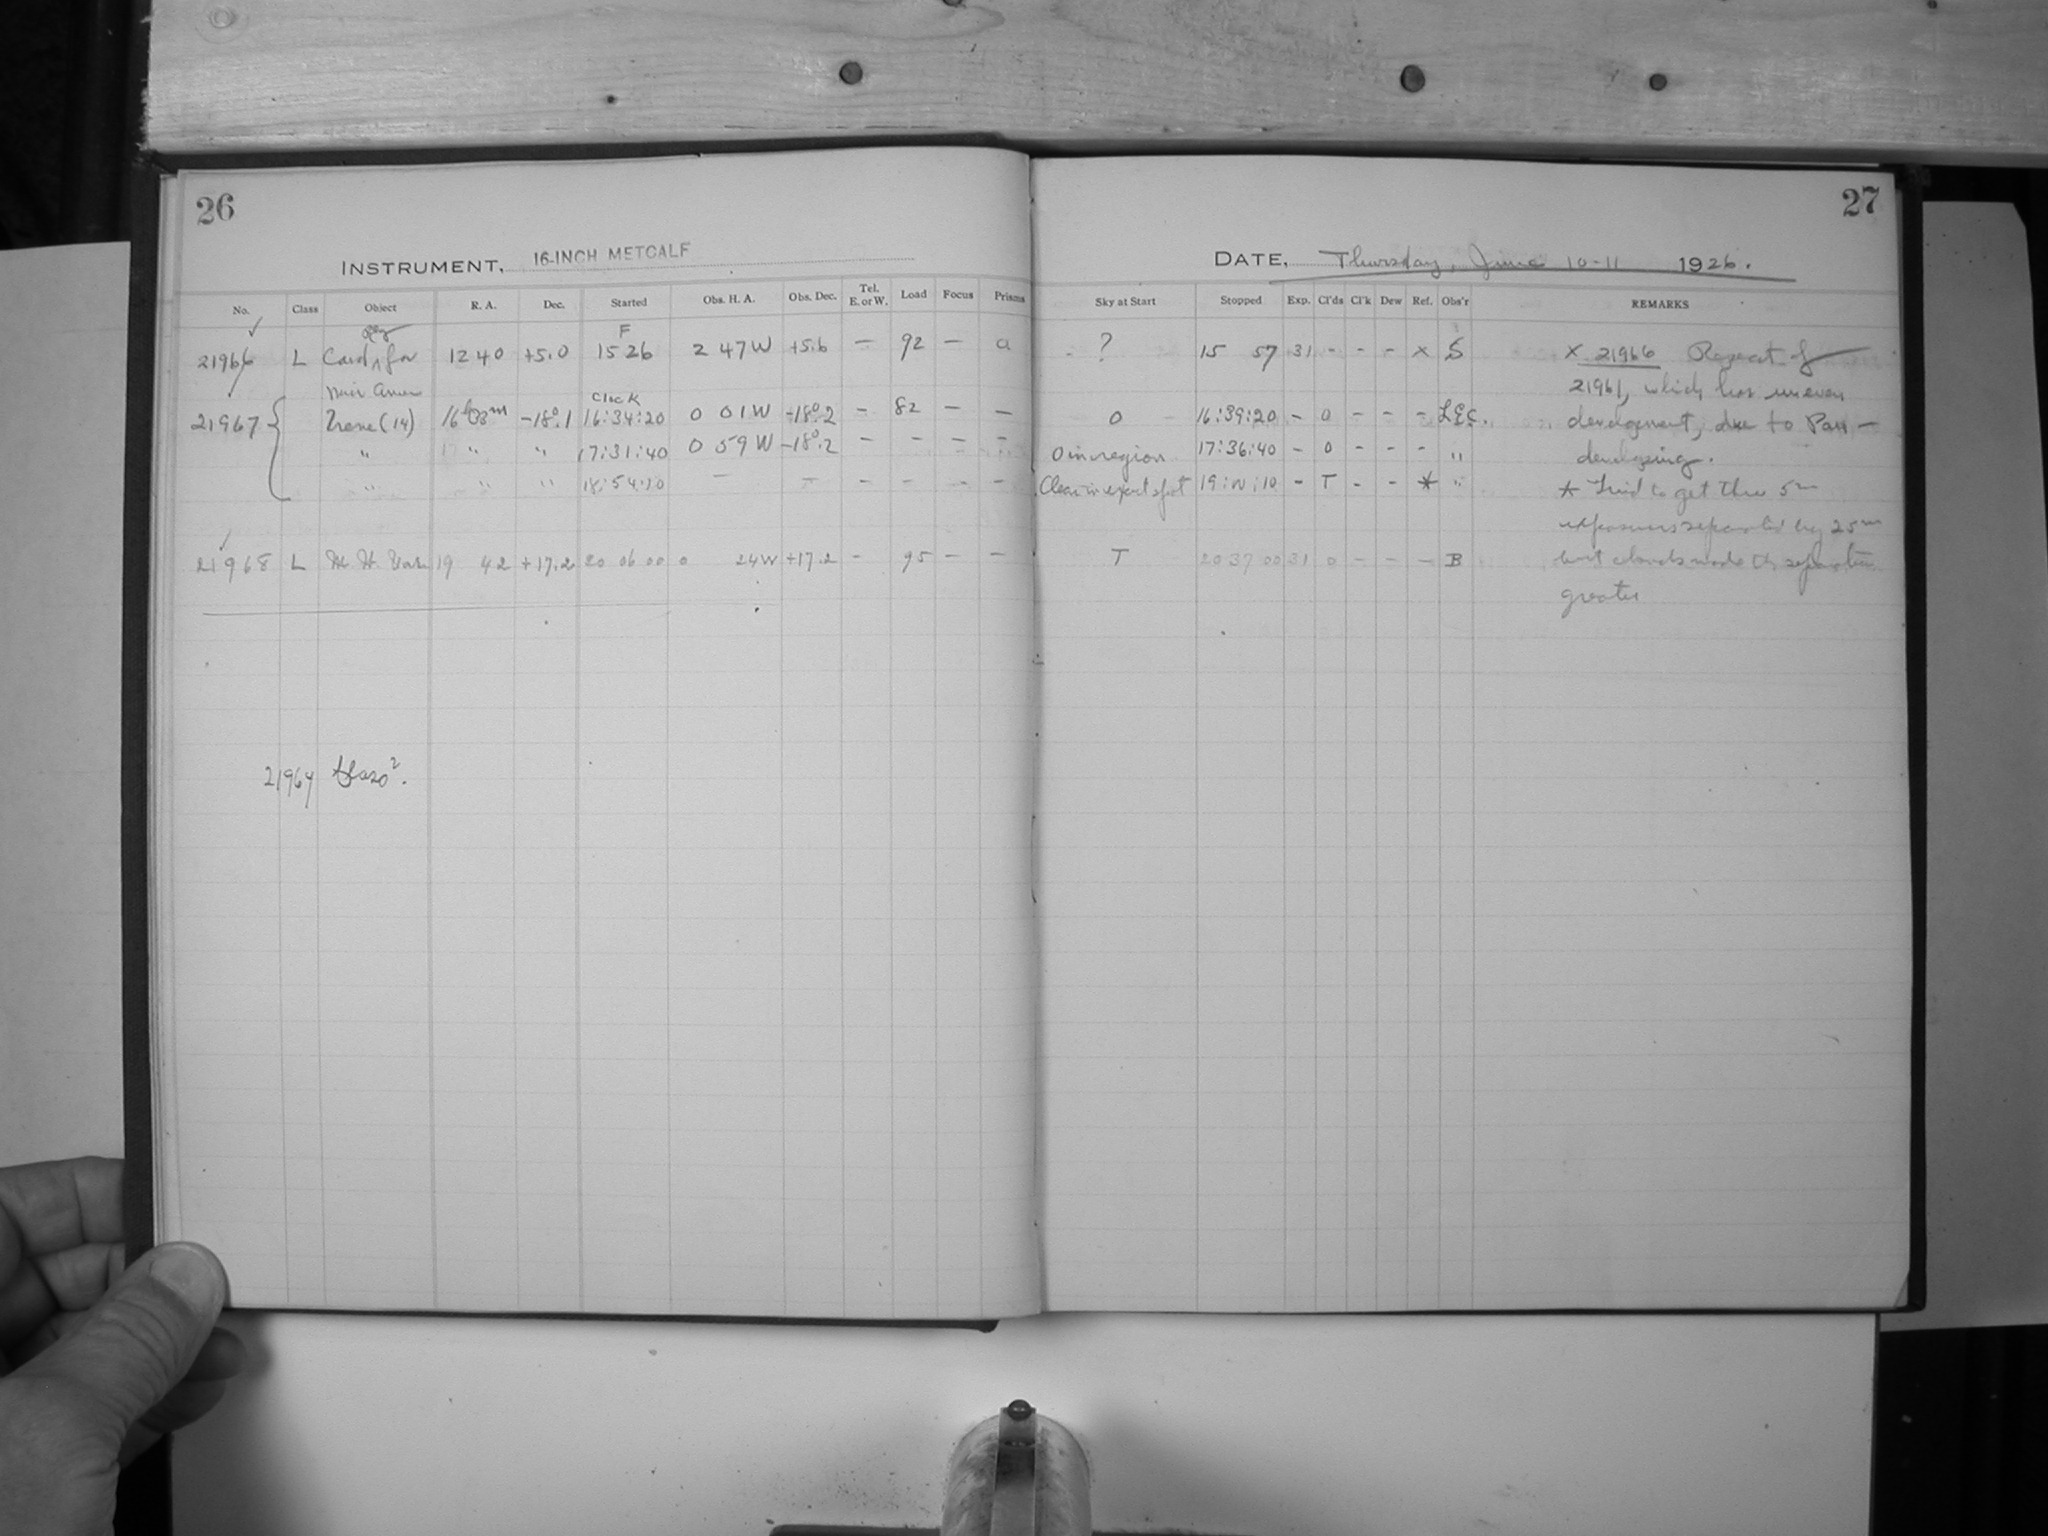 26
INSTRUMENT, 16-INCH METCALF
No. Class Object R. A. Dec. Started Obs. H. A. Obs. Dec. Tel. E. or W. Load Focus Prisms
F
21966 L Card for 12 40 +5.0 15 26 2 47 W +5.6 — 92 — a
Clock
21967 Irene (14) 16h 33m -18°.1 16:34:20 0 01 W -18°.2 — 82 — —
" " " 17:31:40 0 59 W -18°.2 — — — —
" " " 18:54:10 — — — — — —
21968 L 19 42 +17.2 20 06 00 0 24 W +17.2 — 95 — —
21964
27
DATE, Thursday, June 10-11 1926.
Sky at Start Stopped Exp. Cl'ds Cl'k Dew Ref. Obs'r REMARKS
? 15 57 31 - - - x S x 21966 Repeat of
21961, which has uneven
0 16:39:20 - 0 - - - development, due to Pan-
0 in region 17:36:40 - 0 - - - " developing.
Clear in exact spot - T - - * " * Tried to get three 5m
exposures separated by 25m
T 20 37 00 31 0 - - - B but clouds made the separation
greater